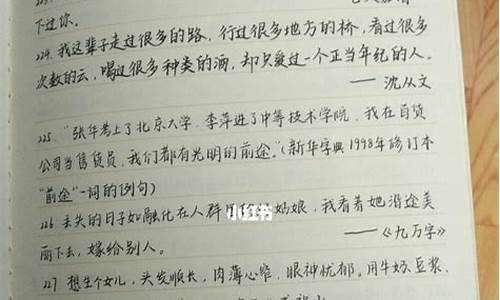 下过你.
224. 我这辈子走过很多的路, 行过很多地方的桥, 看过很多
次数的云, 喝过很多种类的酒, 却只爱过一个正当年纪的人.
—— 沈从文
225. "张华考上了北京大学, 李萍进了中等技术学院, 我在百货
公司当售货员, 我们都有光明的前途." (新华字典1998年修订本
"前途"一词的例句)
226 丢失的日子如融化在人群里的 姑娘, 我看着她沿途美
小红书
丽下去, 嫁给别人.
——《九万字》
227 想生个女儿, 头发顺长, 肉薄心细, 眼神忧郁. 用牛奶豆浆.